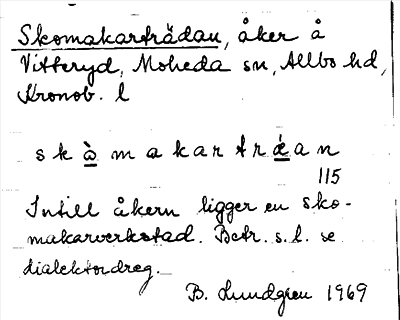 Skomakarträdan, åker å
Vitteryd, Moheda sn, Allbo hd,
Kronob. l
sk&#x5;ò̲makartrǽ̲an
115
Intill åkern ligger en sko-
makarverkstad. Betr. s.l. se
dialektordreg.
B. Lundgren 1969